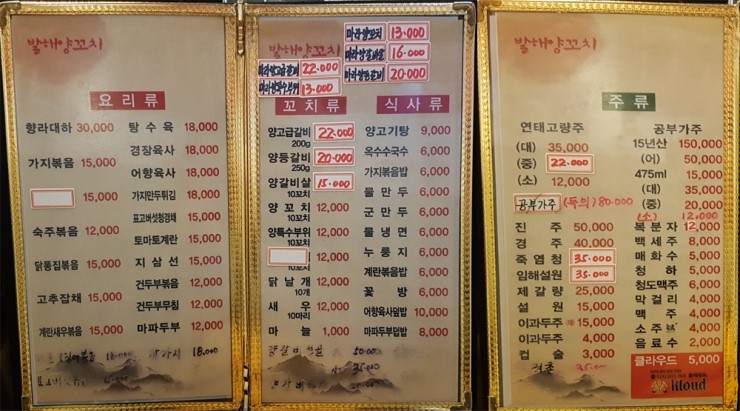 발해양꼬치
요리류
향라대하 30,000
가지볶음 15,000
15,000
숙주볶음 12,000
닭똥집볶음 15,000
고추잡채 15,000
계란새우볶음 15,000
탕수육 18,000
경장육사 18,000
어향육사 18,000
가지만두튀김 18,000
표고버섯청경채 18,000
토마토계란 15,000
지삼선 15,000
건두부볶음 12,000
건두부무침 12,000
마파두부 12,000
18,000
18,000
발해양꼬치
마라양꼬치 13.000
마라양갈비살 16.000
마라양고급갈비 22.000
마라양등갈비 20.000
마라양특수부위 13.000
꼬치류
양고급갈비 22.000
200g
양등갈비 20.000
250g
양갈비살 15.000
10꼬치
양꼬치 12,000
10꼬치
양특수부위 12,000
10꼬치
12,000
10꼬치
닭날개 12,000
10개
새우 12,000
10마리
마늘 1,000
50.000
35.000
식사류
양고기탕 9,000
옥수수국수 6,000
가지볶음밥 6,000
물만두 6,000
군만두 6,000
물냉면 6,000
누룽지 6,000
계란볶음밥 6,000
꽃방 6,000
어향육사덮밥 10,000
마파두부덮밥 8,000
발해양꼬치
주류
연태고량주
(대) 35,000
(중) 22.000
(소) 12,000
공부가주 (득의) 80.000
진주 50,000
경주 40,000
죽엽청 35.000
임해설원 35.000
제갈량 25,000
설원 15,000
이과두주 15,000
이과두주 4,000
컵술 3,000
35.000
공부가주
15년산 150,000
(어) 50,000
475ml 15,000
(대) 35,000
(중) 20,000
(소) 12,000
복분자 12,000
백세주 8,000
매화수 5,000
청하 5,000
청도맥주 6,000
막걸리 4,000
맥주 4,000
소주 4,000
음료수 2,000
클라우드 5,000
Kloud